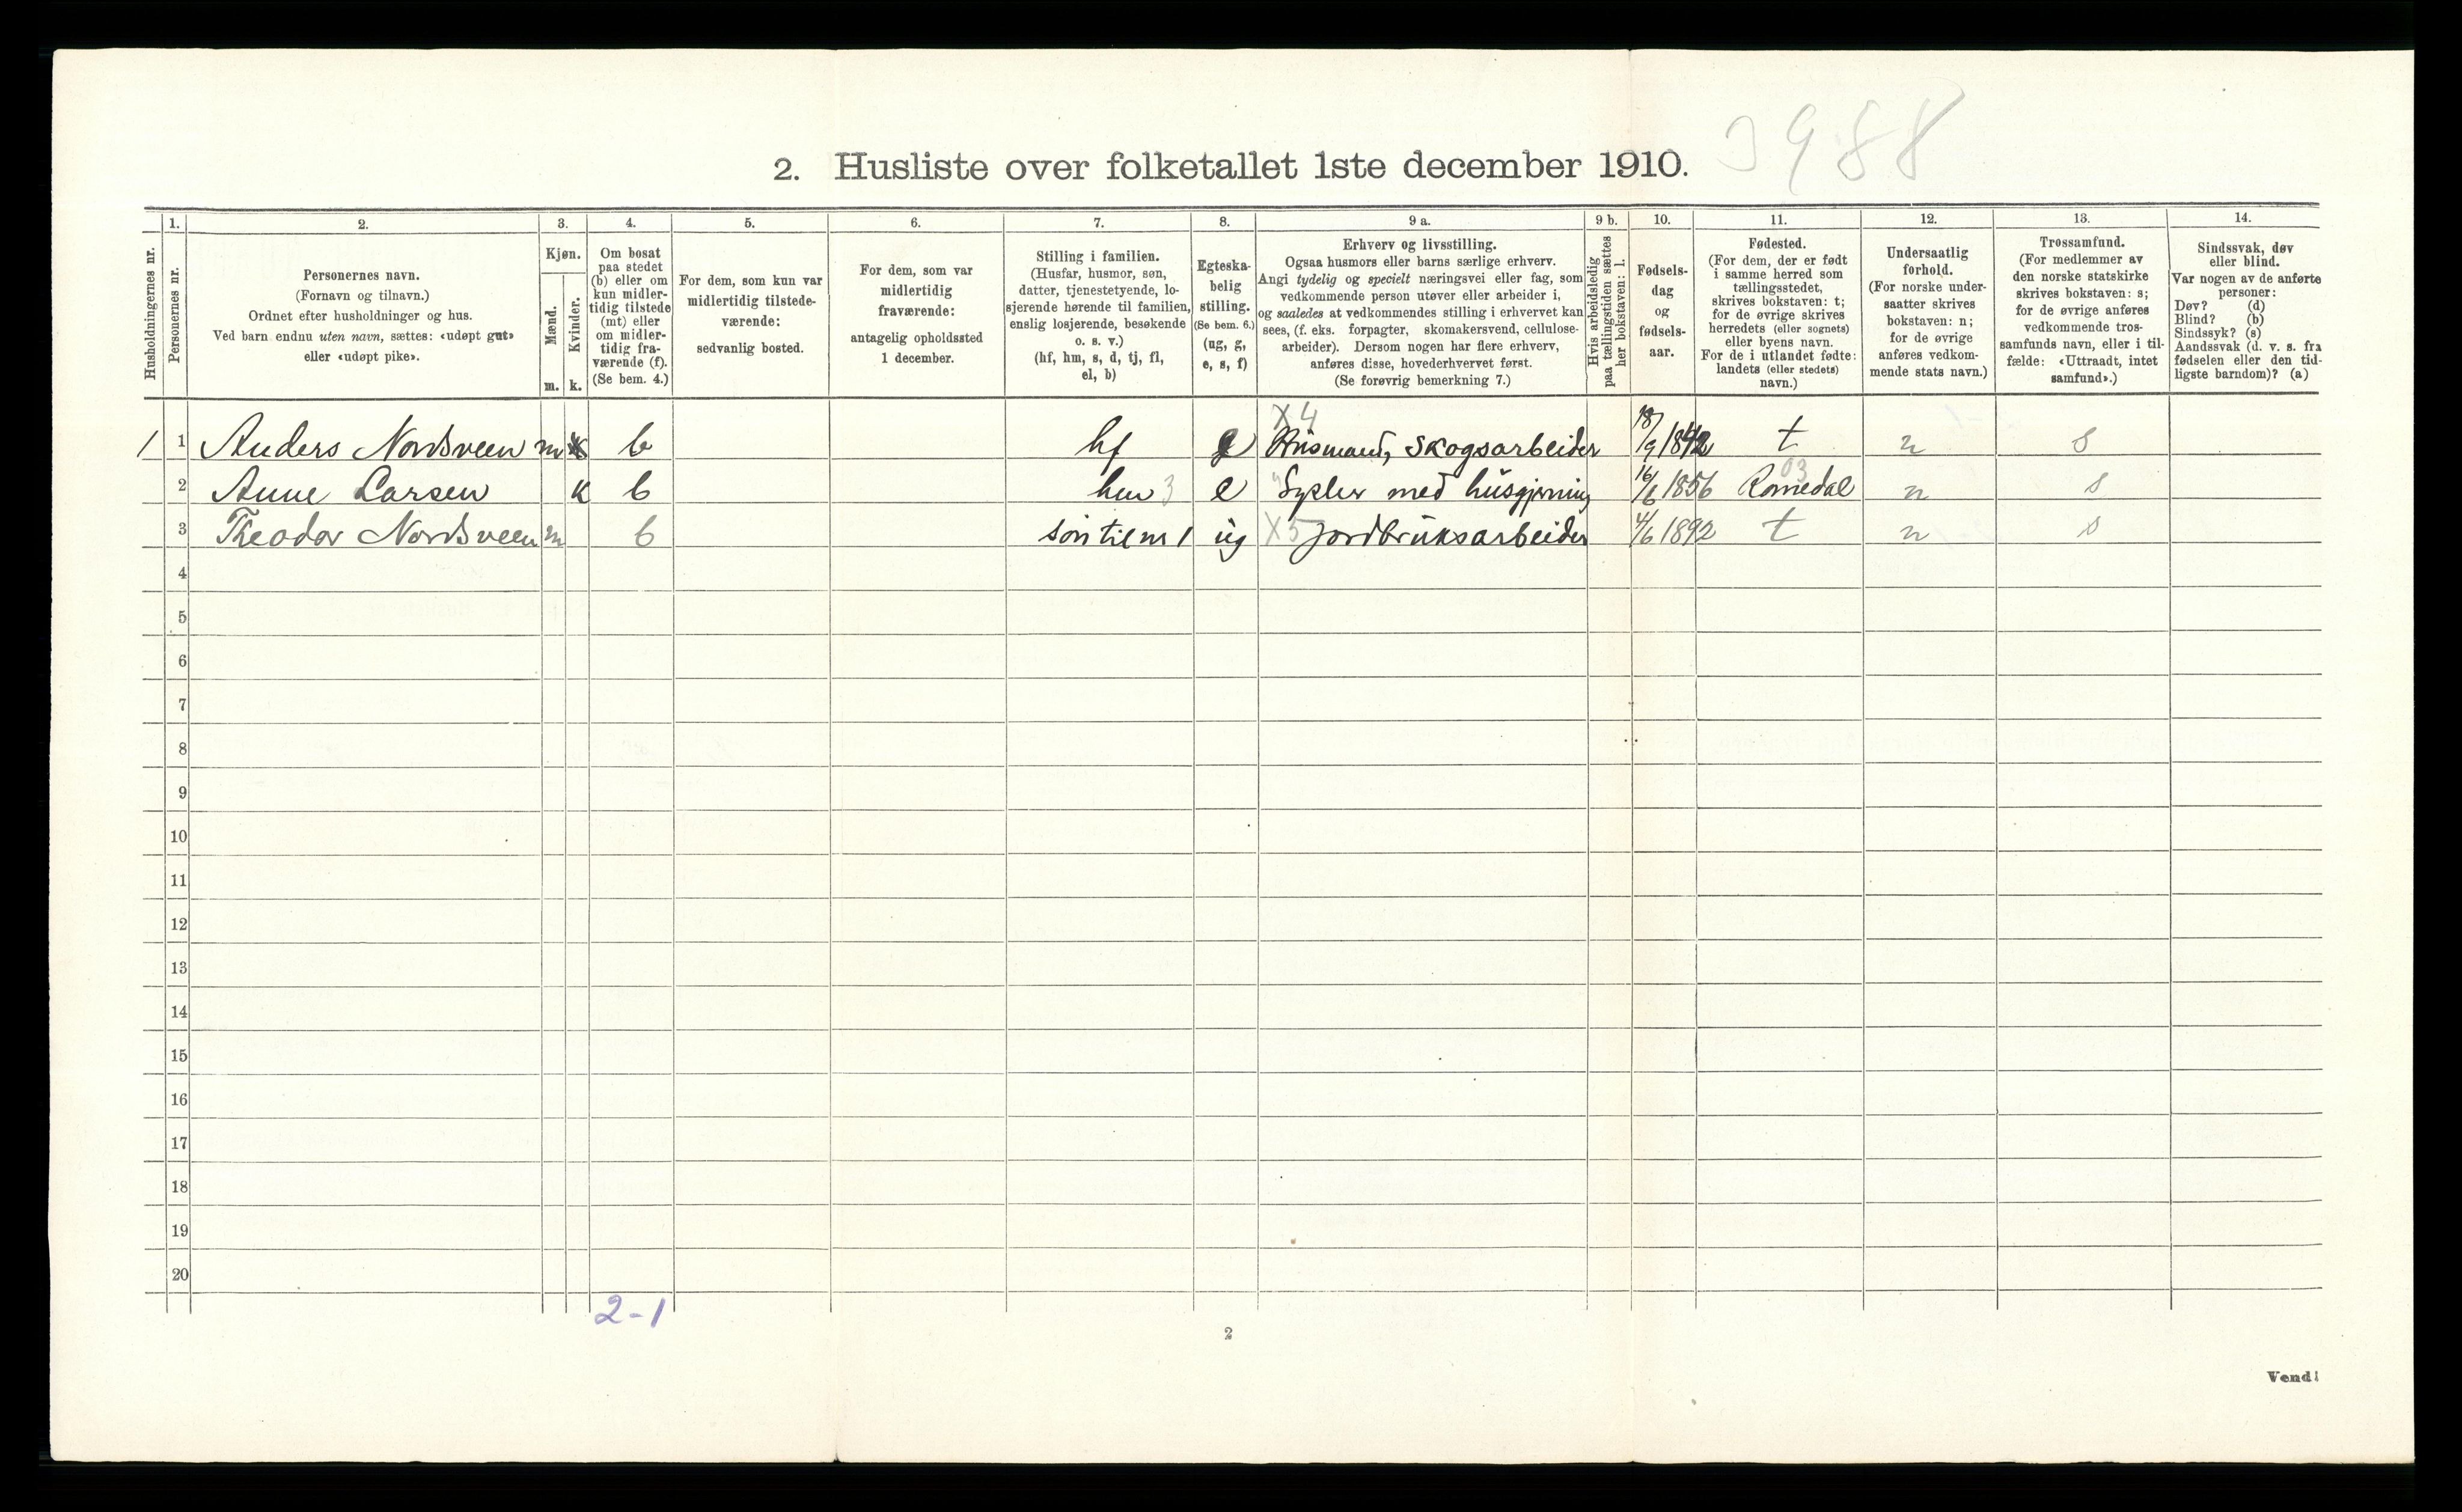 3988
2. Husliste over folketallet 1ste december 1910.
Husholdningernes nr.
1.
Personernes nr.
2.
Personernes navn.
(Fornavn og tilnavn.)
Ordnet efter husholdninger og hus.
Ved barn endnu uten navn, sættes: «udøpt gut»
eller «udøpt pike».
3.
Kjøn.
Mænd.
Kvinder.
m. k.
4.
Om bosat
paa stedet
(b) eller om
kun midler-
tidig tilstede
(mt) eller
om midler-
tidig fra-
værende (f).
(Se bem. 4.)
5.
For dem, som kun var
midlertidig tilstede-
værende:
sedvanlig bosted.
6.
For dem, som var
midlertidig
fraværende:
antagelig opholdssted
1 december.
7.
Stilling i familien.
(Husfar, husmor, søn,
datter, tjenestetyende, lo-
sjerende hørende til familien,
enslig losjerende, besøkende
o. s. v.)
(hf, hm, s, d, tj, fl,
el, b)
8.
Egteska-
belig
stilling.
(Se bem. 6.)
(ug, g,
e, s, f)
9 a.
Erhverv og livsstilling.
Ogsaa husmors eller barns særlige erhverv.
Angi tydelig og specielt næringsvei eller fag, som
vedkommende person utøver eller arbeider i,
og saaledes at vedkommendes stilling i erhvervet kan
sees, (f. eks. forpagter, skomakersvend, cellulose-
arbeider). Dersom nogen har flere erhverv,
anføres disse, hovederhvervet først.
(Se forøvrig bemerkning 7.)
9 b.
Hvis arbeidsledig
paa tællingstiden sættes
her bokstaven: l.
10.
Fødsels-
dag
og
fødsels-
aar.
11.
Fødested.
(For dem, der er født
i samme herred som
tællingsstedet,
skrives bokstaven: t;
for de øvrige skrives
herredets (eller sognets)
eller byens navn.
For de i utlandet fødte:
landets (eller stedets)
navn.)
12.
Undersaatlig
forhold.
(For norske under-
saatter skrives
bokstaven: n;
for de øvrige
anføres vedkom-
mende stats navn.)
13.
Trossamfund.
(For medlemmer av
den norske statskirke
skrives bokstaven: s;
for de øvrige anføres
vedkommende tros-
samfunds navn, eller i til-
fælde: «Uttraadt, intet
samfund».)
14.
Sindssvak, døv
eller blind.
Var nogen av de anførte
personer:
Døv? (d)
Blind? (b)
Sindssyk? (s)
Aandssvak (d. v. s. fra
fødselen eller den tid-
ligste barndom)? (a)
X 4
1 1 Anders Nordsveen m k b hf Husmand, Skogsarbeider 18/9 1842 t n s
03
2 Anne Larsen k b hm 3 e Sysler med husgjerning 16/6 1856 Romedal n s
3 Theodor Nordsveen m b søn til nr 1 ug X5 Jordbruksarbeider 4/6 1892 t n s
4
5
6
7
8
9
10
11
12
13
14
15
16
17
18
19
20
2-1
2
Vend!